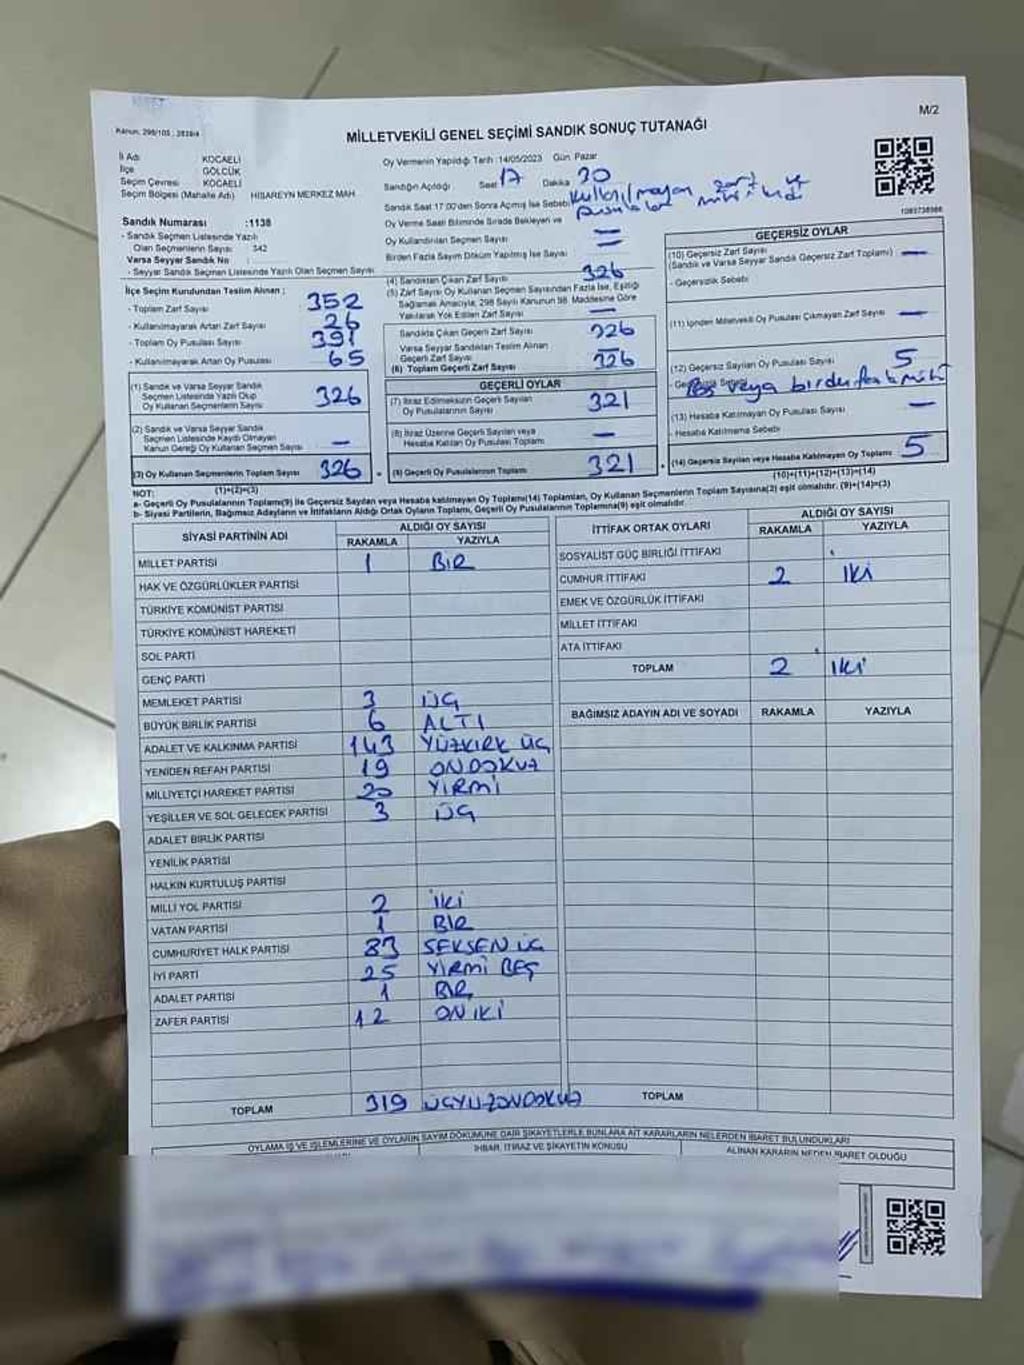 M/2
Kanun: 298/105 ; 2839/4
MİLLETVEKİLİ GENEL SEÇİMİ SANDIK SONUÇ TUTANAĞI
İl Adı KOCAELİ
İlçe GÖLCÜK
Seçim Çevresi KOCAELİ
Seçim Bölgesi (Mahalle Adı) HİSAREYN MERKEZ MAH.
Sandık Numarası :1138
- Sandık Seçmen Listesinde Yazılı
Olan Seçmenlerin Sayısı 342
Varsa Seyyar Sandık No :
- Seyyar Sandık Seçmen Listesinde Yazılı Olan Seçmen Sayısı
Oy Vermenin Yapıldığı Tarih :14/05/2023 Gün: Pazar
Sandığın Açılışı Saat 17 Dakika 30
Sandık Saat 17:00'den Sonra Açılmış İse Sebebi Kullanılmayan zarf ve
pusulalar
Oy Verme Saati Bitiminde Sırada Bekleyen ve
Oy Kullandırılan Seçmen Sayısı —
Birden Fazla Sayım Döküm Yapılmış İse Sayısı —
İlçe Seçim Kurulundan Teslim Alınan ;
- Toplam Zarf Sayısı 352
- Kullanılmayarak Artan Zarf Sayısı 26
- Toplam Oy Pusulası Sayısı 391
- Kullanılmayarak Artan Oy Pusulası 65
(1) Sandık ve Varsa Seyyar Sandık
Seçmen Listesinde Yazılı Olup
Oy Kullanan Seçmenlerin Sayısı 326
(2) Sandık ve Varsa Seyyar Sandık
Seçmen Listesinde Kaydı Olmayan
Kanun Gereği Oy Kullanan Seçmen Sayısı —
(3) Oy Kullanan Seçmenlerin Toplam Sayısı 326
(1)+(2)=(3)
(4) Sandıktan Çıkan Zarf Sayısı 326
(5) Zarf Sayısı Oy Kullanan Seçmen Sayısından Fazla İse, Eşitliği
Sağlamak Amacıyla, 298 Sayılı Kanunun 98. Maddesine Göre
Yakılarak Yok Edilen Zarf Sayısı —
Sandıkta Çıkan Geçerli Zarf Sayısı 326
Varsa Seyyar Sandıktan Teslim Alınan
Geçerli Zarf Sayısı —
(6) Toplam Geçerli Zarf Sayısı 326
GEÇERLİ OYLAR
(7) İtiraz Edilmeksizin Geçerli Sayılan
Oy Pusulalarının Sayısı 321
(8) İtiraz Üzerine Geçerli Sayılan veya
Hesaba Katılan Oy Pusulası Toplamı —
(9) Geçerli Oy Pusulalarının Toplamı 321
GEÇERSİZ OYLAR
(10) Geçersiz Zarf Sayısı
(Sandık ve Varsa Seyyar Sandık Geçersiz Zarf Toplamı) —
- Geçersizlik Sebebi
(11) İçinden Milletvekili Oy Pusulası Çıkmayan Zarf Sayısı —
(12) Geçersiz Sayılan Oy Pusulası Sayısı 5
Boş veya birden fazla mühür
(13) Hesaba Katılmayan Oy Pusulası Sayısı —
- Hesaba Katılmama Sebebi
(14) Geçersiz Sayılan veya Hesaba Katılmayan Oy Toplamı 5
(10)+(11)+(12)+(13)=(14)
NOT:
a- Geçerli Oy Pusulalarının Toplamı(9) ile Geçersiz Sayılan veya Hesaba katılmayan Oy Toplamı(14) Toplamları, Oy Kullanan Seçmenlerin Toplam Sayısına(3) eşit olmalıdır. (9)+(14)=(3)
b- Siyasi Partilerin, Bağımsız Adayların ve İttifakların Aldığı Ortak Oyların Toplamı, Geçerli Oy Pusulalarının Toplamına(9) eşit olmalıdır
SİYASİ PARTİNİN ADI ALDIĞI OY SAYISI
RAKAMLA YAZIYLA
MİLLET PARTİSİ 1 BİR
HAK VE ÖZGÜRLÜKLER PARTİSİ
TÜRKİYE KOMÜNİST PARTİSİ
TÜRKİYE KOMÜNİST HAREKETİ
SOL PARTİ
GENÇ PARTİ
MEMLEKET PARTİSİ 3 ÜÇ
BÜYÜK BİRLİK PARTİSİ 6 ALTI
ADALET VE KALKINMA PARTİSİ 143 YÜZKIRK ÜÇ
YENİDEN REFAH PARTİSİ 19 ONDOKUZ
MİLLİYETÇİ HAREKET PARTİSİ 20 YİRMİ
YEŞİLLER VE SOL GELECEK PARTİSİ 3 ÜÇ
ADALET BİRLİK PARTİSİ
YENİLİK PARTİSİ
HALKIN KURTULUŞ PARTİSİ
MİLLİ YOL PARTİSİ 2 İKİ
VATAN PARTİSİ 1 BİR
CUMHURİYET HALK PARTİSİ 83 SEKSEN ÜÇ
İYİ PARTİ 25 YİRMİ BEŞ
ADALET PARTİSİ 1 BİR
ZAFER PARTİSİ 12 ON İKİ
TOPLAM 319 ÜÇYÜZONDOKUZ
İTTİFAK ORTAK OYLARI ALDIĞI OY SAYISI
RAKAMLA YAZIYLA
SOSYALİST GÜÇ BİRLİĞİ İTTİFAKI
CUMHUR İTTİFAKI 2 İKİ
EMEK VE ÖZGÜRLÜK İTTİFAKI
MİLLET İTTİFAKI
ATA İTTİFAKI
TOPLAM 2 İKİ
BAĞIMSIZ ADAYIN ADI VE SOYADI RAKAMLA YAZIYLA
TOPLAM
OYLAMA İŞ VE İŞLEMLERİNE VE OYLARIN SAYIM DÖKÜMÜNE DAİR ŞİKAYETLERLE BUNLARA AİT KARARLARIN NELERDEN İBARET BULUNDUKLARI
İHBAR, İTİRAZ VE ŞİKAYETİN KONUSU
ALINAN KARARIN NEDEN İBARET OLDUĞU